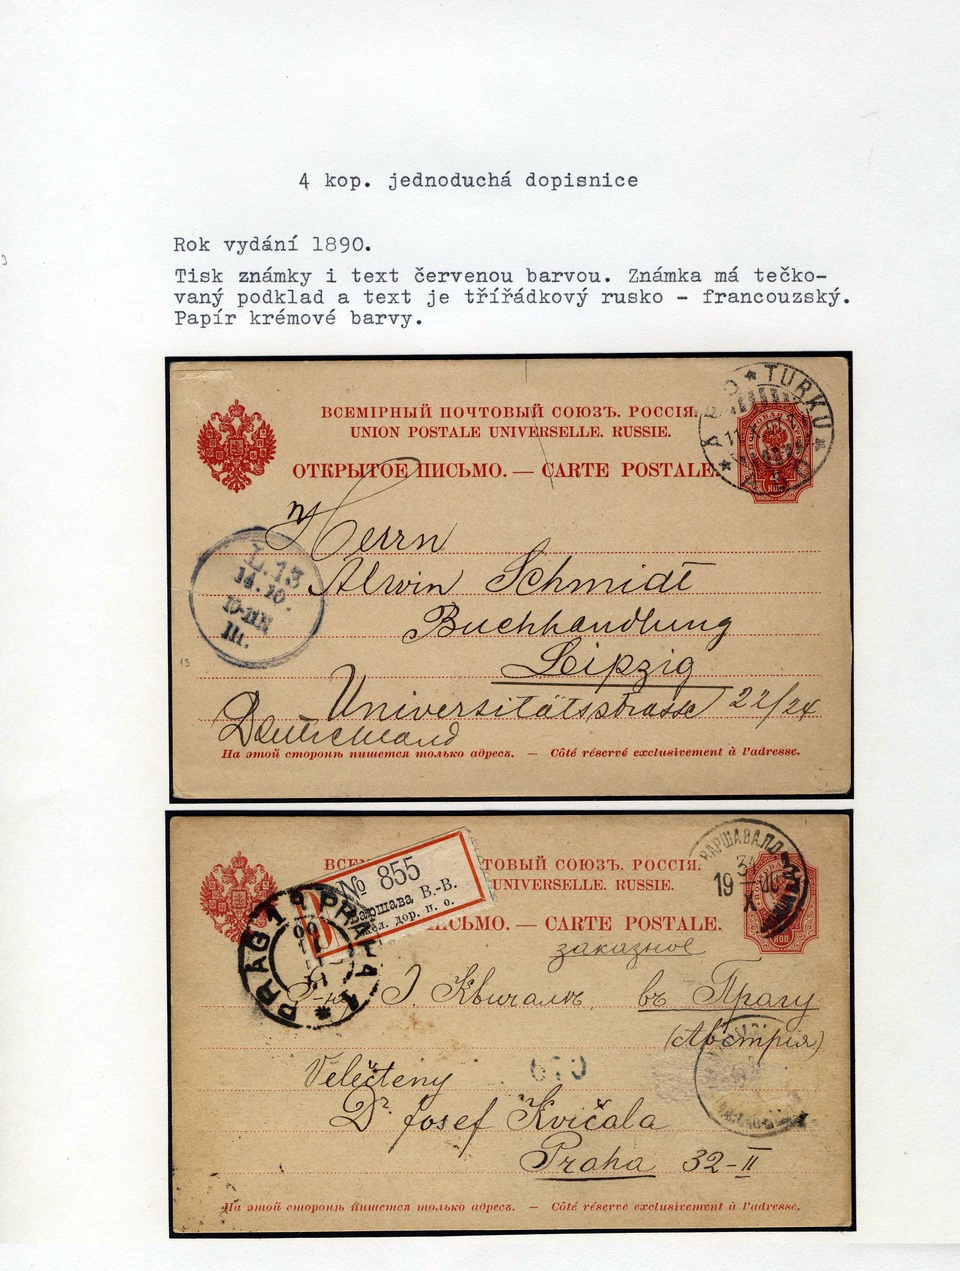 4 kop. jednoduchá dopisnice
Rok vydání 1890.
Tisk známky i text červenou barvou. Známka má tečko-
vaný podklad a text je třířádkový rusko - francouzský.
Papír krémové barvy.
ВСЕМІРНЫЙ ПОЧТОВЫЙ СОЮЗЪ. РОССІЯ.
UNION POSTALE UNIVERSELLE. RUSSIE.
ОТКРЫТОЕ ПИСЬМО. — CARTE POSTALE.
ÅBO TURKU
Herrn
L.13
14.10.
Alwin Schmidt
Buchhandlung
Leipzig
Universitätsstrasse 22/24
Deutschland
На этой сторонѣ пишется только адресъ. — Côté réservé exclusivement à l'adresse.
ВАРШАВА
31
19 00
X
ВСЕ ТОВЫЙ СОЮЗЪ. РОССІЯ.
UNIVERSELLE. RUSSIE.
№ 855
Варшава В.-В.
жел. дор. п. о.
ПИСЬМО. — CARTE POSTALE.
PRAG 1 PRAHA 1
заказное
І. Квичала въ Прагу
(Австрія)
Velectěny
Dr. Josef Kvičala
Praha 32-II
На этой сторонѣ пишется только адресъ. — Côté réservé exclusivement à l'adresse.